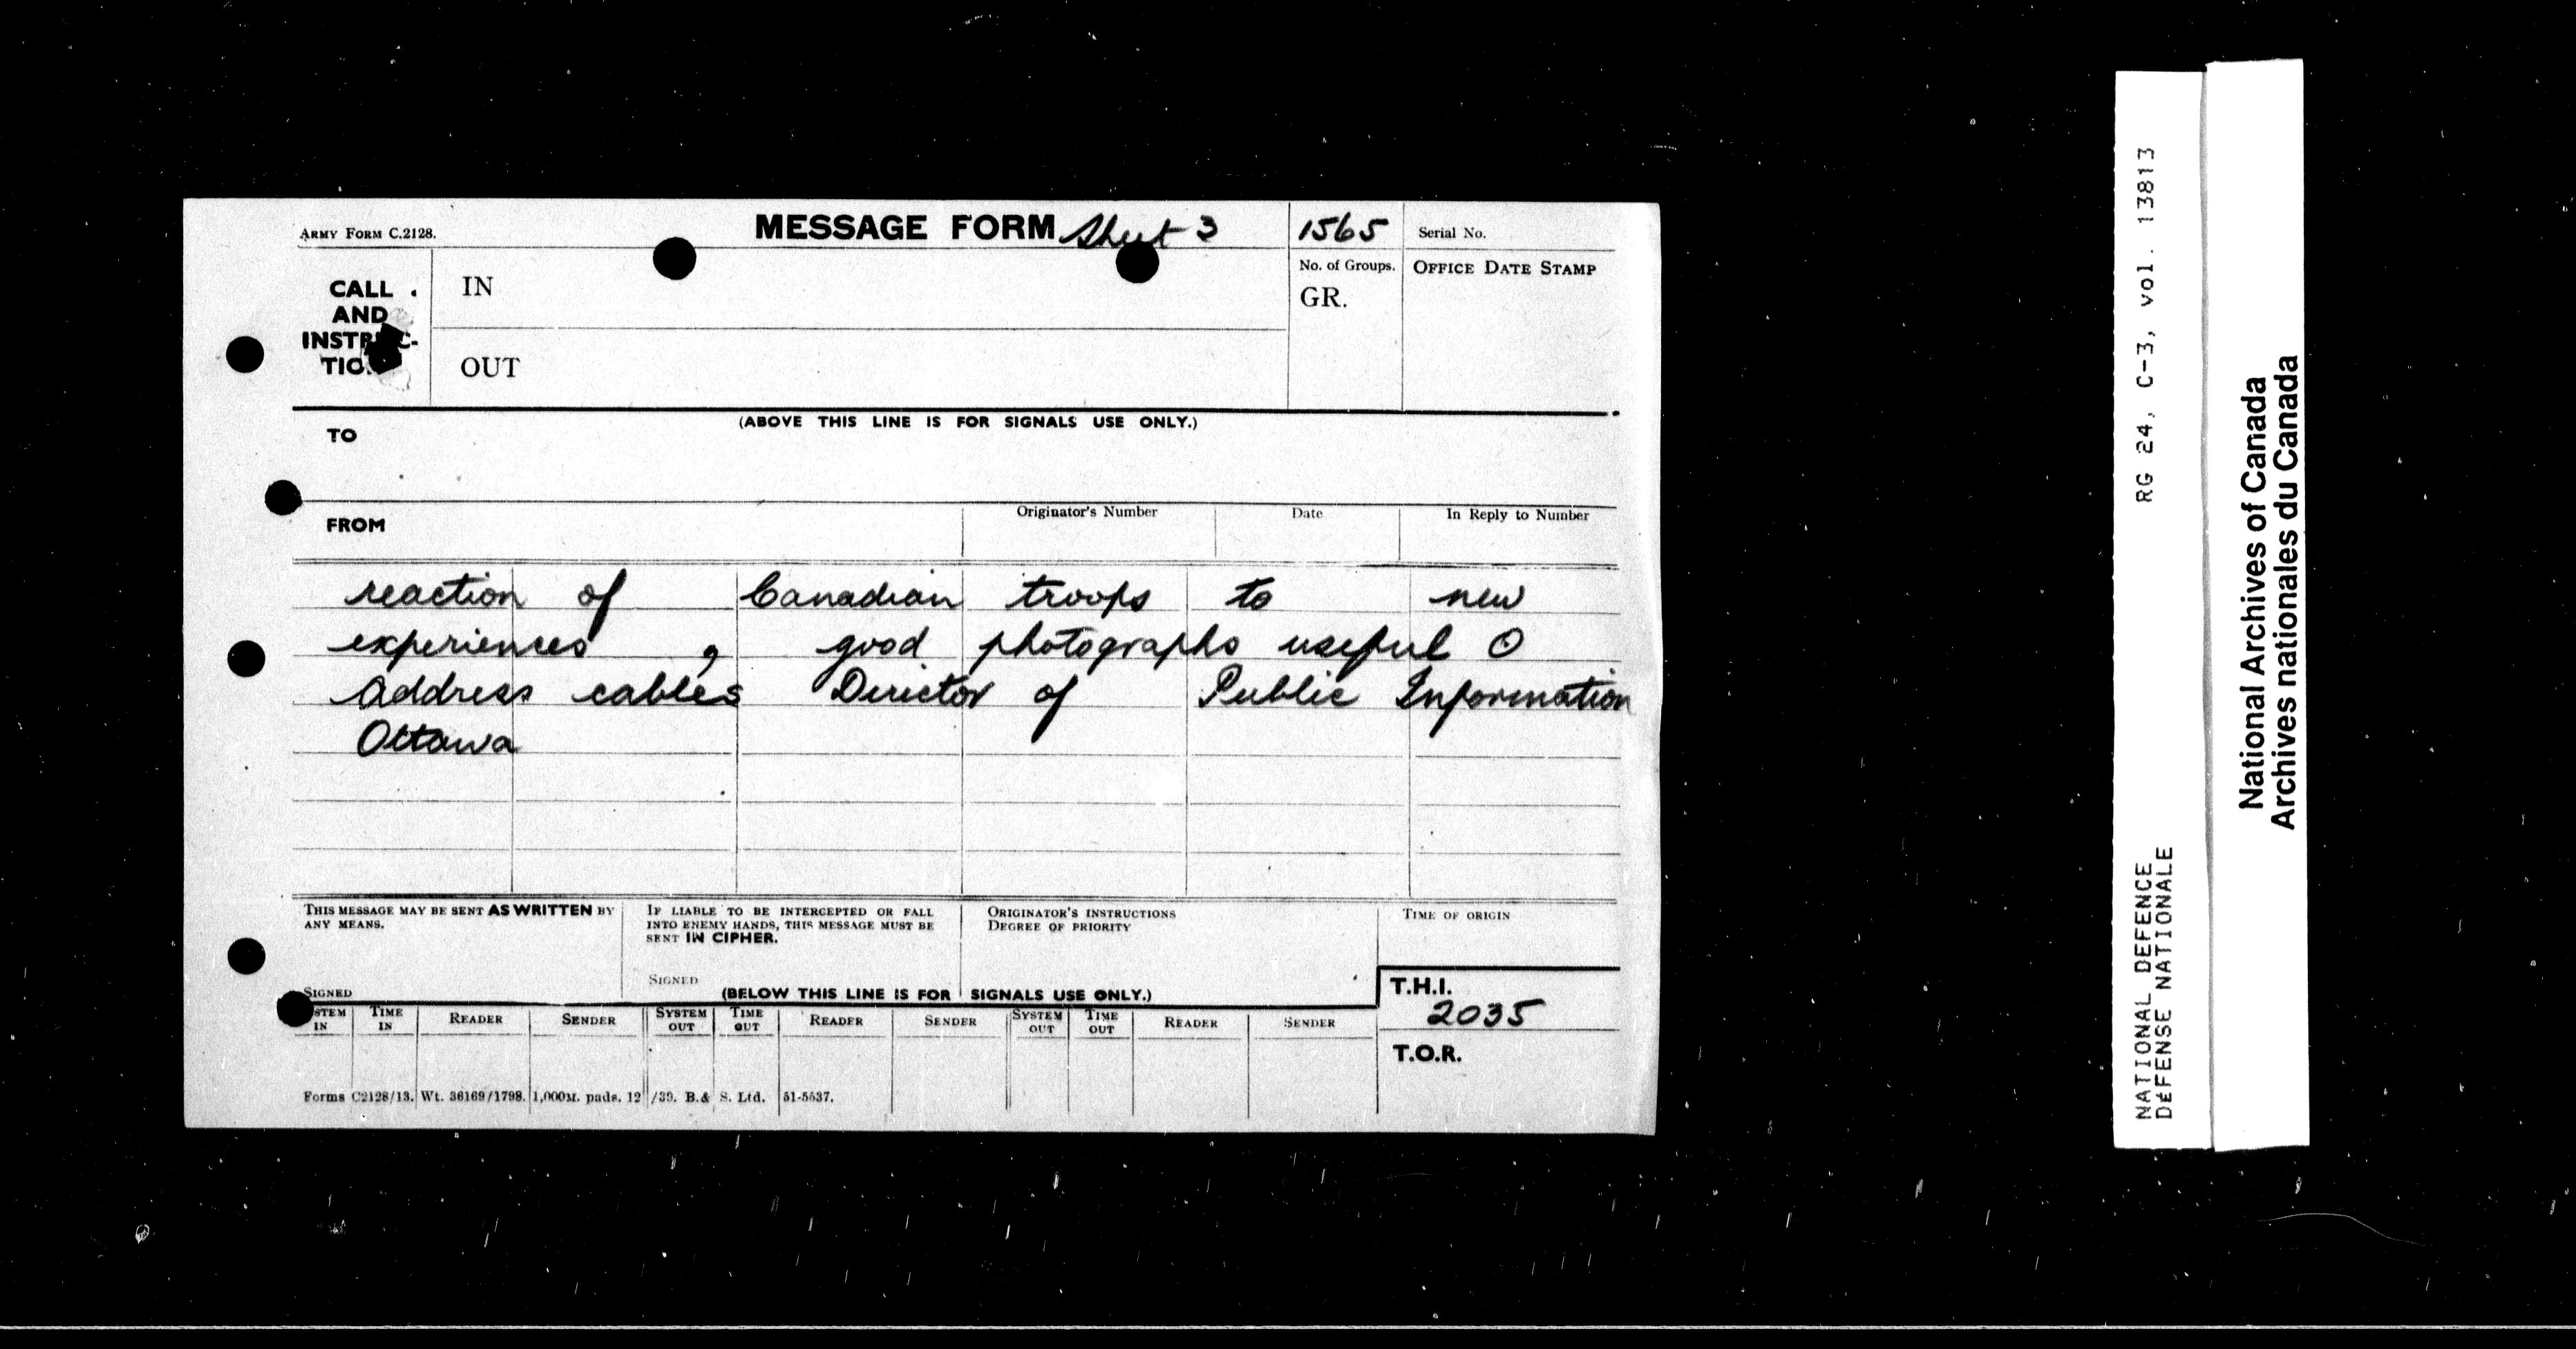 ARMY FORM C.2128.
MESSAGE FORM Sheet 3
1565
Serial No.
CALL
AND
INSTRUC-
TION
IN
OUT
No. of Groups.
GR.
OFFICE DATE STAMP
(ABOVE THIS LINE IS FOR SIGNALS USE ONLY.)
TO
FROM
Originator's Number
Date
In Reply to Number
reaction of Canadian troops to new
experiences , good photographs useful O
Address cables Director of Public Information
Ottawa
THIS MESSAGE MAY BE SENT AS WRITTEN BY
ANY MEANS.
SIGNED
IF LIABLE TO BE INTERCEPTED OR FALL
INTO ENEMY HANDS, THIS MESSAGE MUST BE
SENT IN CIPHER.
SIGNED
ORIGINATOR'S INSTRUCTIONS
DEGREE OF PRIORITY
TIME OF ORIGIN
(BELOW THIS LINE IS FOR SIGNALS USE ONLY.)
T.H.I.
2035
T.O.R.
SYSTEM IN TIME IN READER SENDER SYSTEM OUT TIME OUT READER SENDER SYSTEM OUT TIME OUT READER SENDER
Forms C2128/13. Wt. 36169/1798. 1,000M. pads. 12/39. B.& S. Ltd. 51-5537.
RG 24, C-3, vol. 13813
NATIONAL DEFENCE
DÉFENSE NATIONALE
National Archives of Canada
Archives nationales du Canada